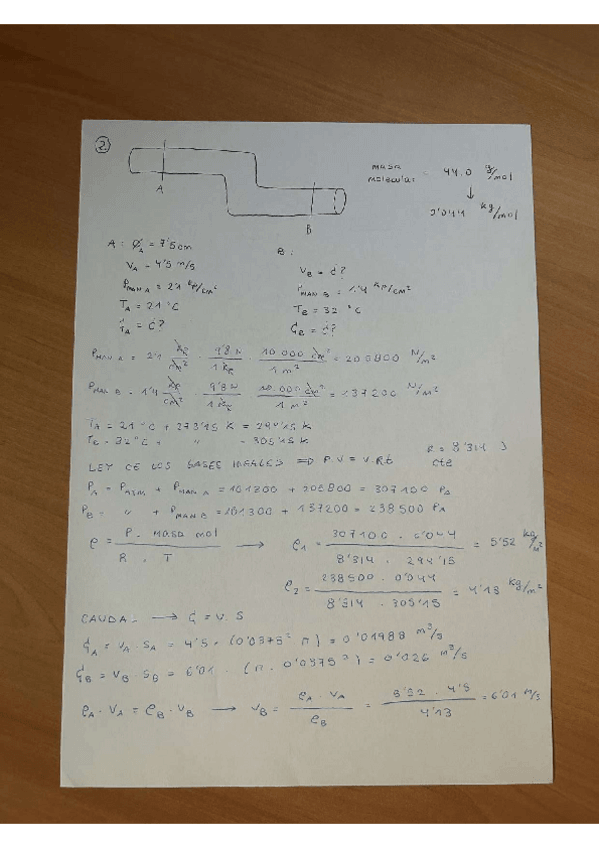 2
masa molecular = 44.0 g/mol
↓
0'044 kg/mol
A
B
A: Ø_A = 7'5 cm
V_A = 4'5 m/s
P_MAN A = 2'1 kp/cm²
T_A = 21 °C
Ġ_A = ¿?
B:
V_B = ¿?
P_MAN B = 1'4 kp/cm²
T_B = 32 °C
Ġ_B = ¿?
P_MAN A = 2'1 kp/cm² · 9'8 N/1 kp · 10.000 cm²/1 m² = 205800 N/m²
P_MAN B = 1'4 kp/cm² · 9'8 N/1 kp · 10.000 cm²/1 m² = 137200 N/m²
T_A = 21 °C + 273'15 K = 294'15 K
T_B = 32 °C + " = 305'15 K
LEY DE LOS GASES IDEALES => P.V = n.R.t
R = 8'314 J
cte
P_A = P_ATM + P_MAN A = 101300 + 205800 = 307100 Pa
P_B = " + P_MAN B = 101300 + 137200 = 238500 Pa
ρ = P. masa mol / R . T → ρ_1 = 307100 . 0'044 / 8'314 . 294'15 = 5'52 kg/m²
ρ_2 = 238500 . 0'044 / 8'314 . 305'15 = 4'13 kg/m²
CAUDAL → Ġ = V. S
Ġ_A = V_A . S_A = 4'5 · (0'0375² π) = 0'01988 m³/s
Ġ_B = V_B . S_B = 6'01 . (π . 0'0375²) = 0'026 m³/s
ρ_A . V_A = ρ_B . V_B → V_B = ρ_A . V_A / ρ_B = 5'52 . 4'5 / 4'13 = 6'01 m/s